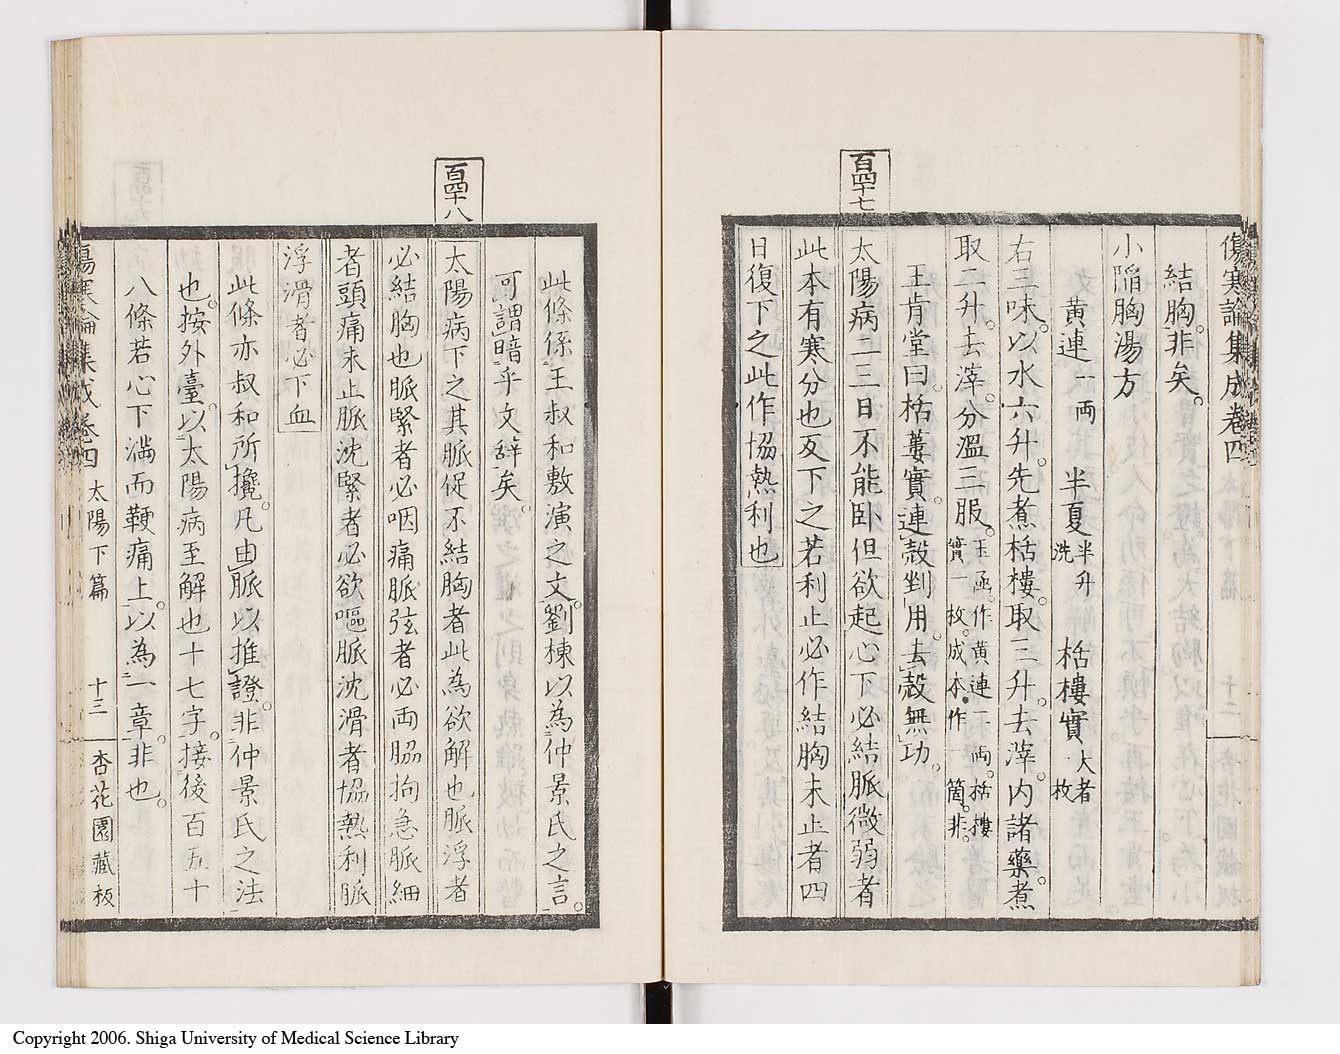 傷寒論集成卷四
結胸。非矣。
小陷胸湯方
黃連一兩 半夏半升洗 栝樓實大者一枚
右三味。以水六升。先煮栝樓。取三升。去滓。内諸藥煮
取二升。去滓。分溫三服。玉函。作黃連一兩。栝樓實一枚。成本。作一箇。非。
王肯堂曰。栝蔞實。連殼剉用。去殼無功。
百四十七
太陽病二三日不能臥但欲起心下必結脈微弱者
此本有寒分也反下之若利止必作結胸未止者四
日復下之此作協熱利也
此條係王叔和敷演之文。劉棟以為仲景氏之言。
可謂暗乎文辭矣。
百四十八
太陽病下之其脈促不結胸者此為欲解也脈浮者
必結胸也脈緊者必咽痛脈弦者必両脇拘急脈細
數者頭痛未止脈沈緊者必欲嘔脈沈滑者協熱利脈
浮滑者必下血
此條亦叔和所攙。凡由脈以推證。非仲景氏之法
也。按外臺。以太陽病至解也十七字。接後百五十
八條若心下滿而鞕痛上。以為一章。非也。
傷寒論集成卷四 太陽下篇 十三 杏花園藏板
Copyright 2006. Shiga University of Medical Science Library